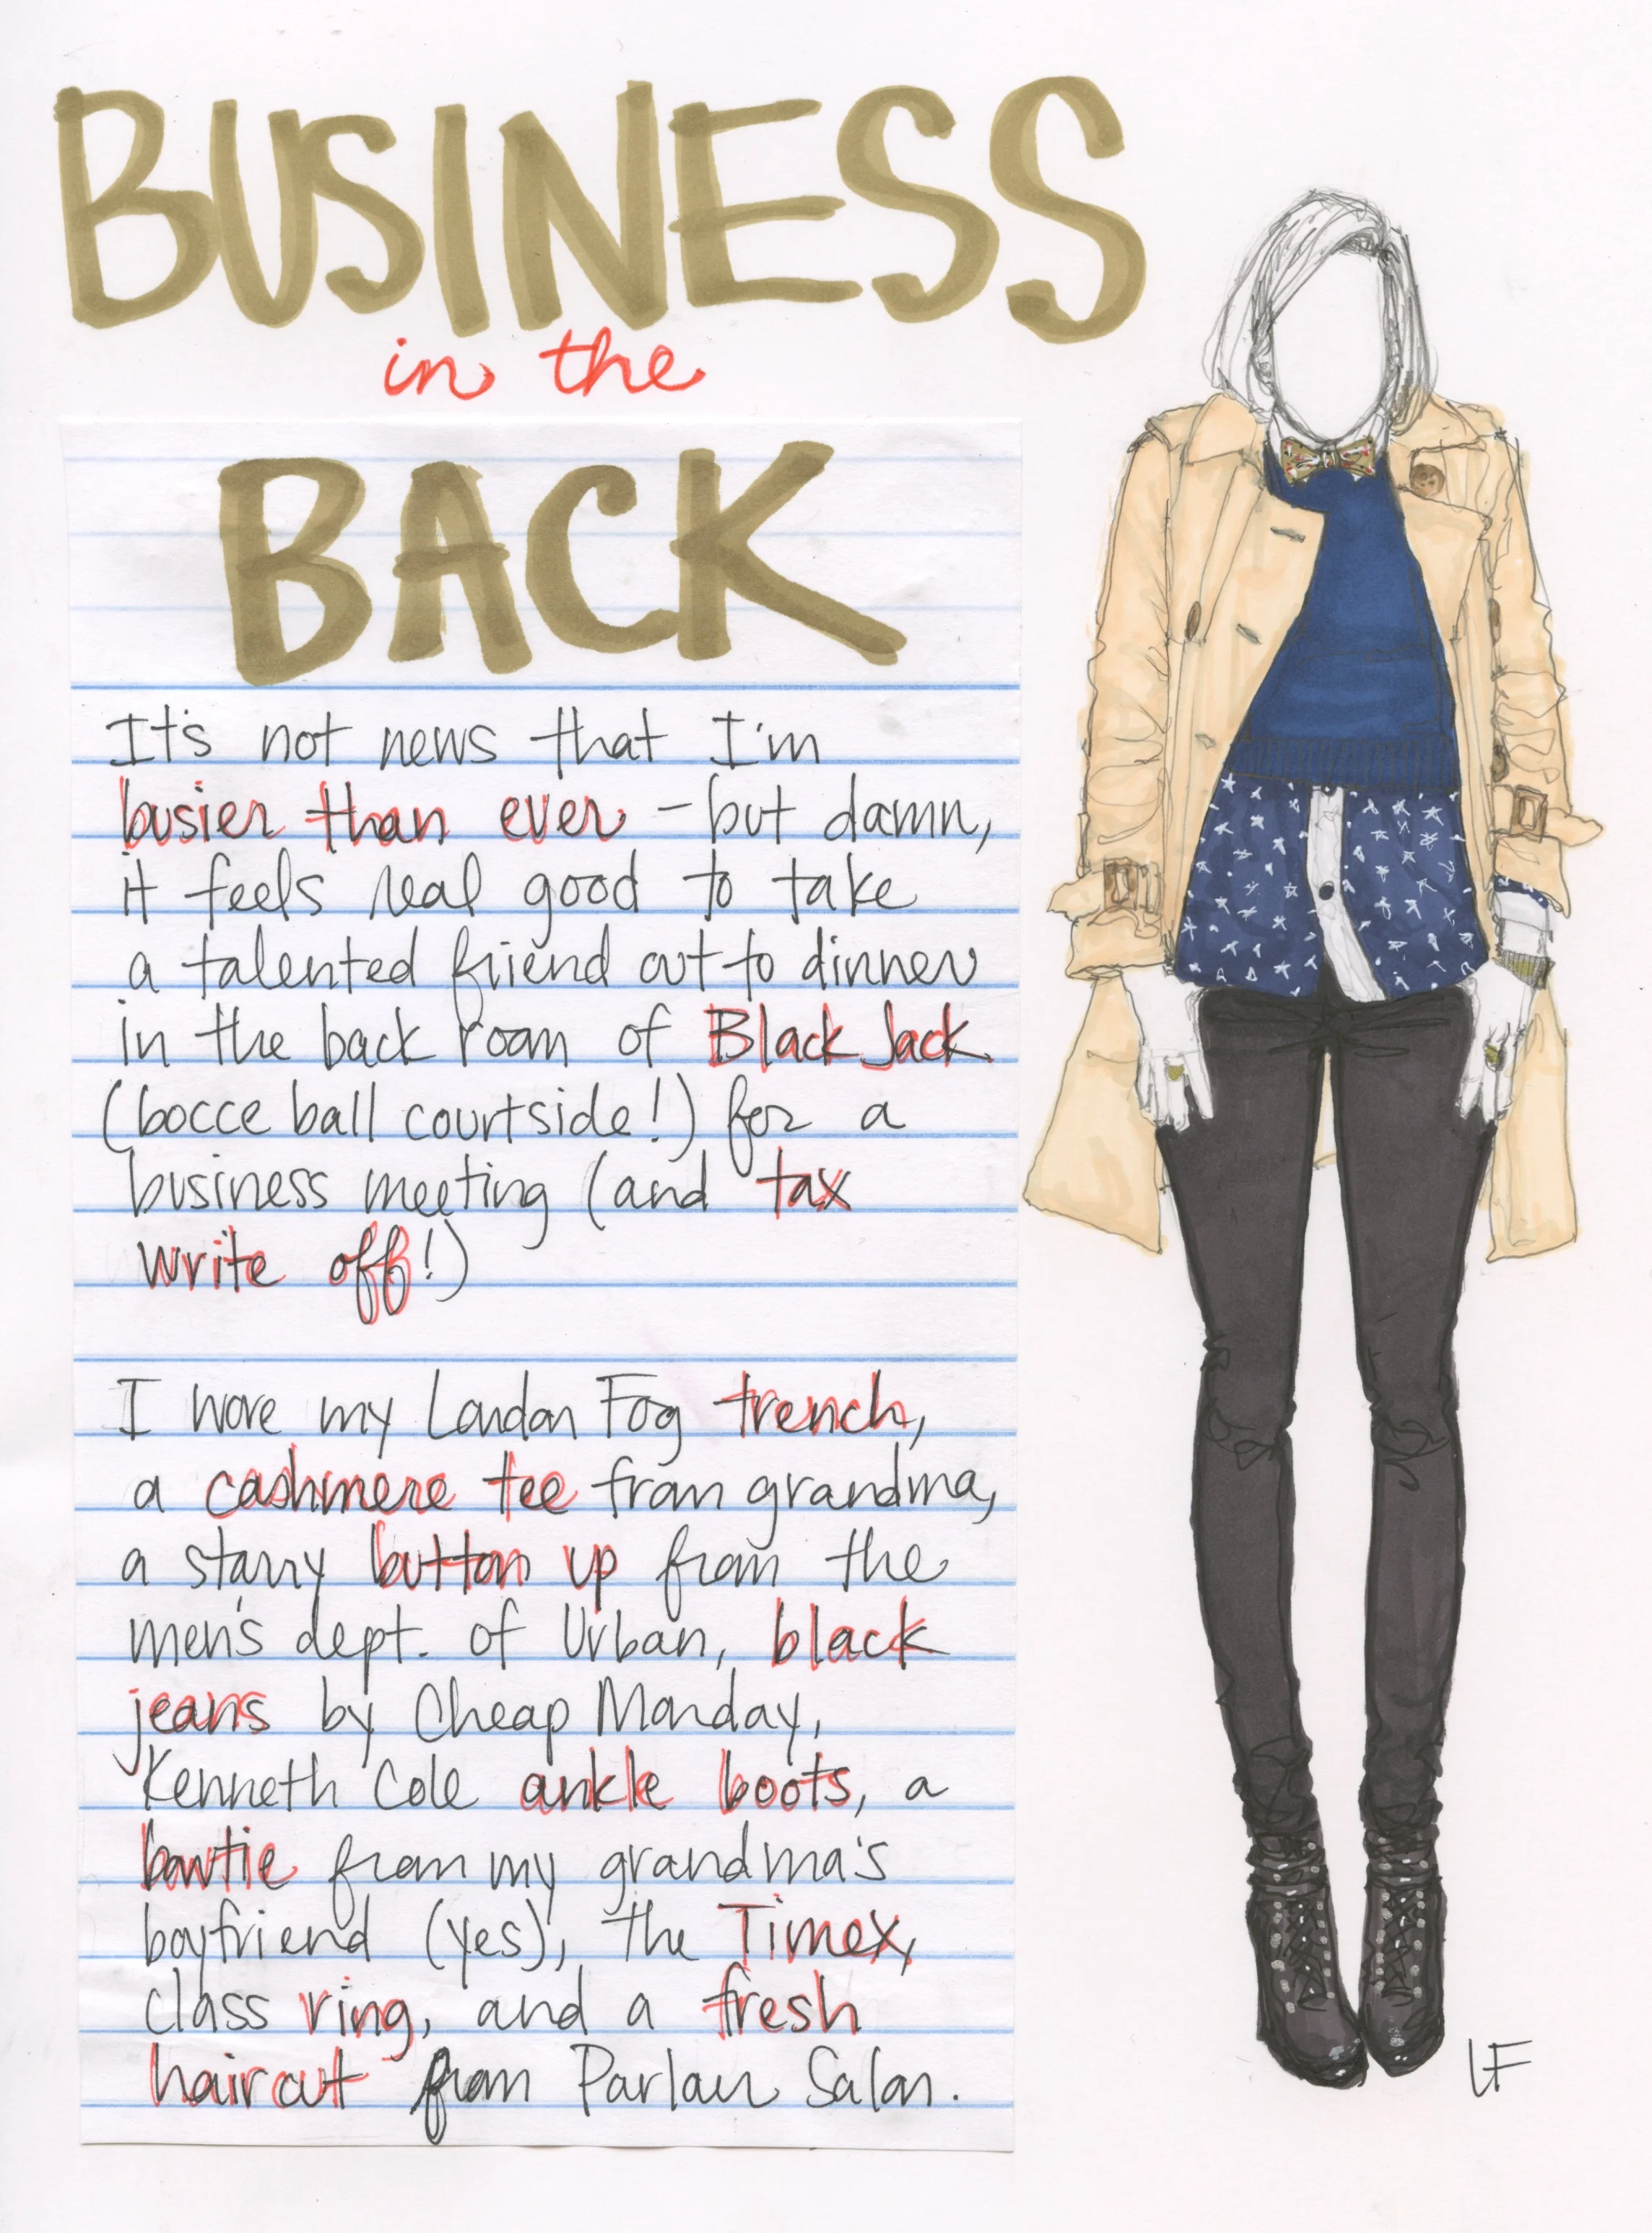 BUSINESS
in the
BACK
It's not news that I'm
busier than ever - but damn,
it feels real good to take
a talented friend out to dinner
in the back room of Black Jack
(bocce ball courtside!) for a
business meeting (and tax
write off!)
I wore my London Fog trench,
a cashmere tee from grandma,
a starry button up from the
men's dept. of Urban, black
jeans by Cheap Monday,
Kenneth Cole ankle boots, a
bowtie from my grandma's
boyfriend (yes), the Timex,
class ring, and a fresh
haircut from Parlour Salon.
LF